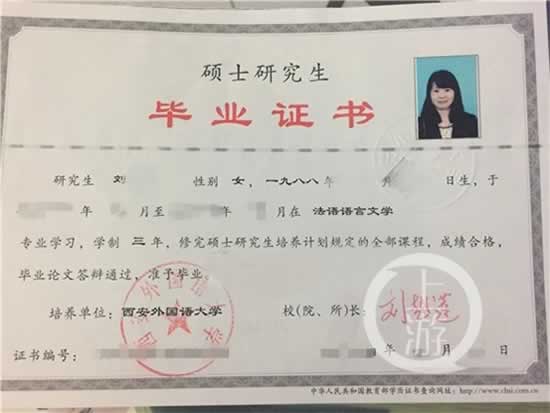 硕士研究生
毕业证书
研究生 刘 性别 女，一九八八年 月 日生，于
年 月至 年 月在 法语语言文学
专业学习，学制 三 年，修完硕士研究生培养计划规定的全部课程，成绩合格，
毕业论文答辩通过，准予毕业。
培养单位：西安外国语大学 校(院、所)长：刘
证书编号： 年 月 日
中华人民共和国教育部学历证书查询网址：http://www.chsi.com.cn
西安外国语大学
上游